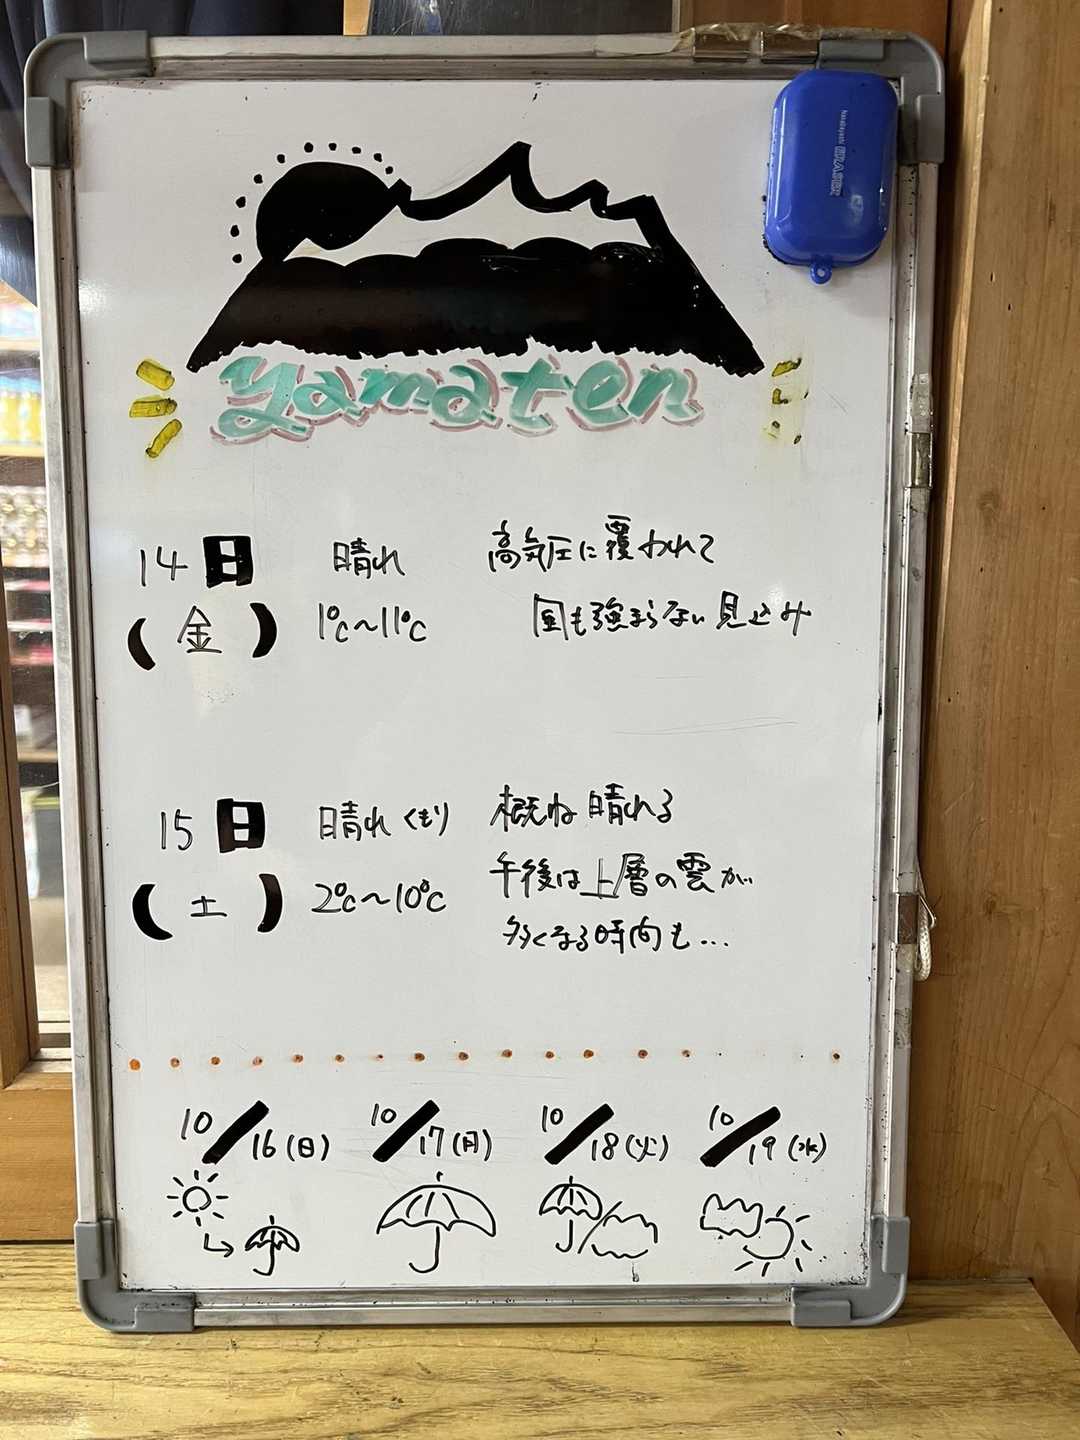 Nakabayashi ERASER
yamaten
14日 晴れ 高気圧に覆われて
(金) 1℃〜11℃ 風も強まらない見込み
15日 晴れくもり 概ね晴れる
(土) 2℃〜10℃ 午後は上層の雲が
多くなる時間も...
10/16(日) 10/17(月) 10/18(火) 10/19(水)